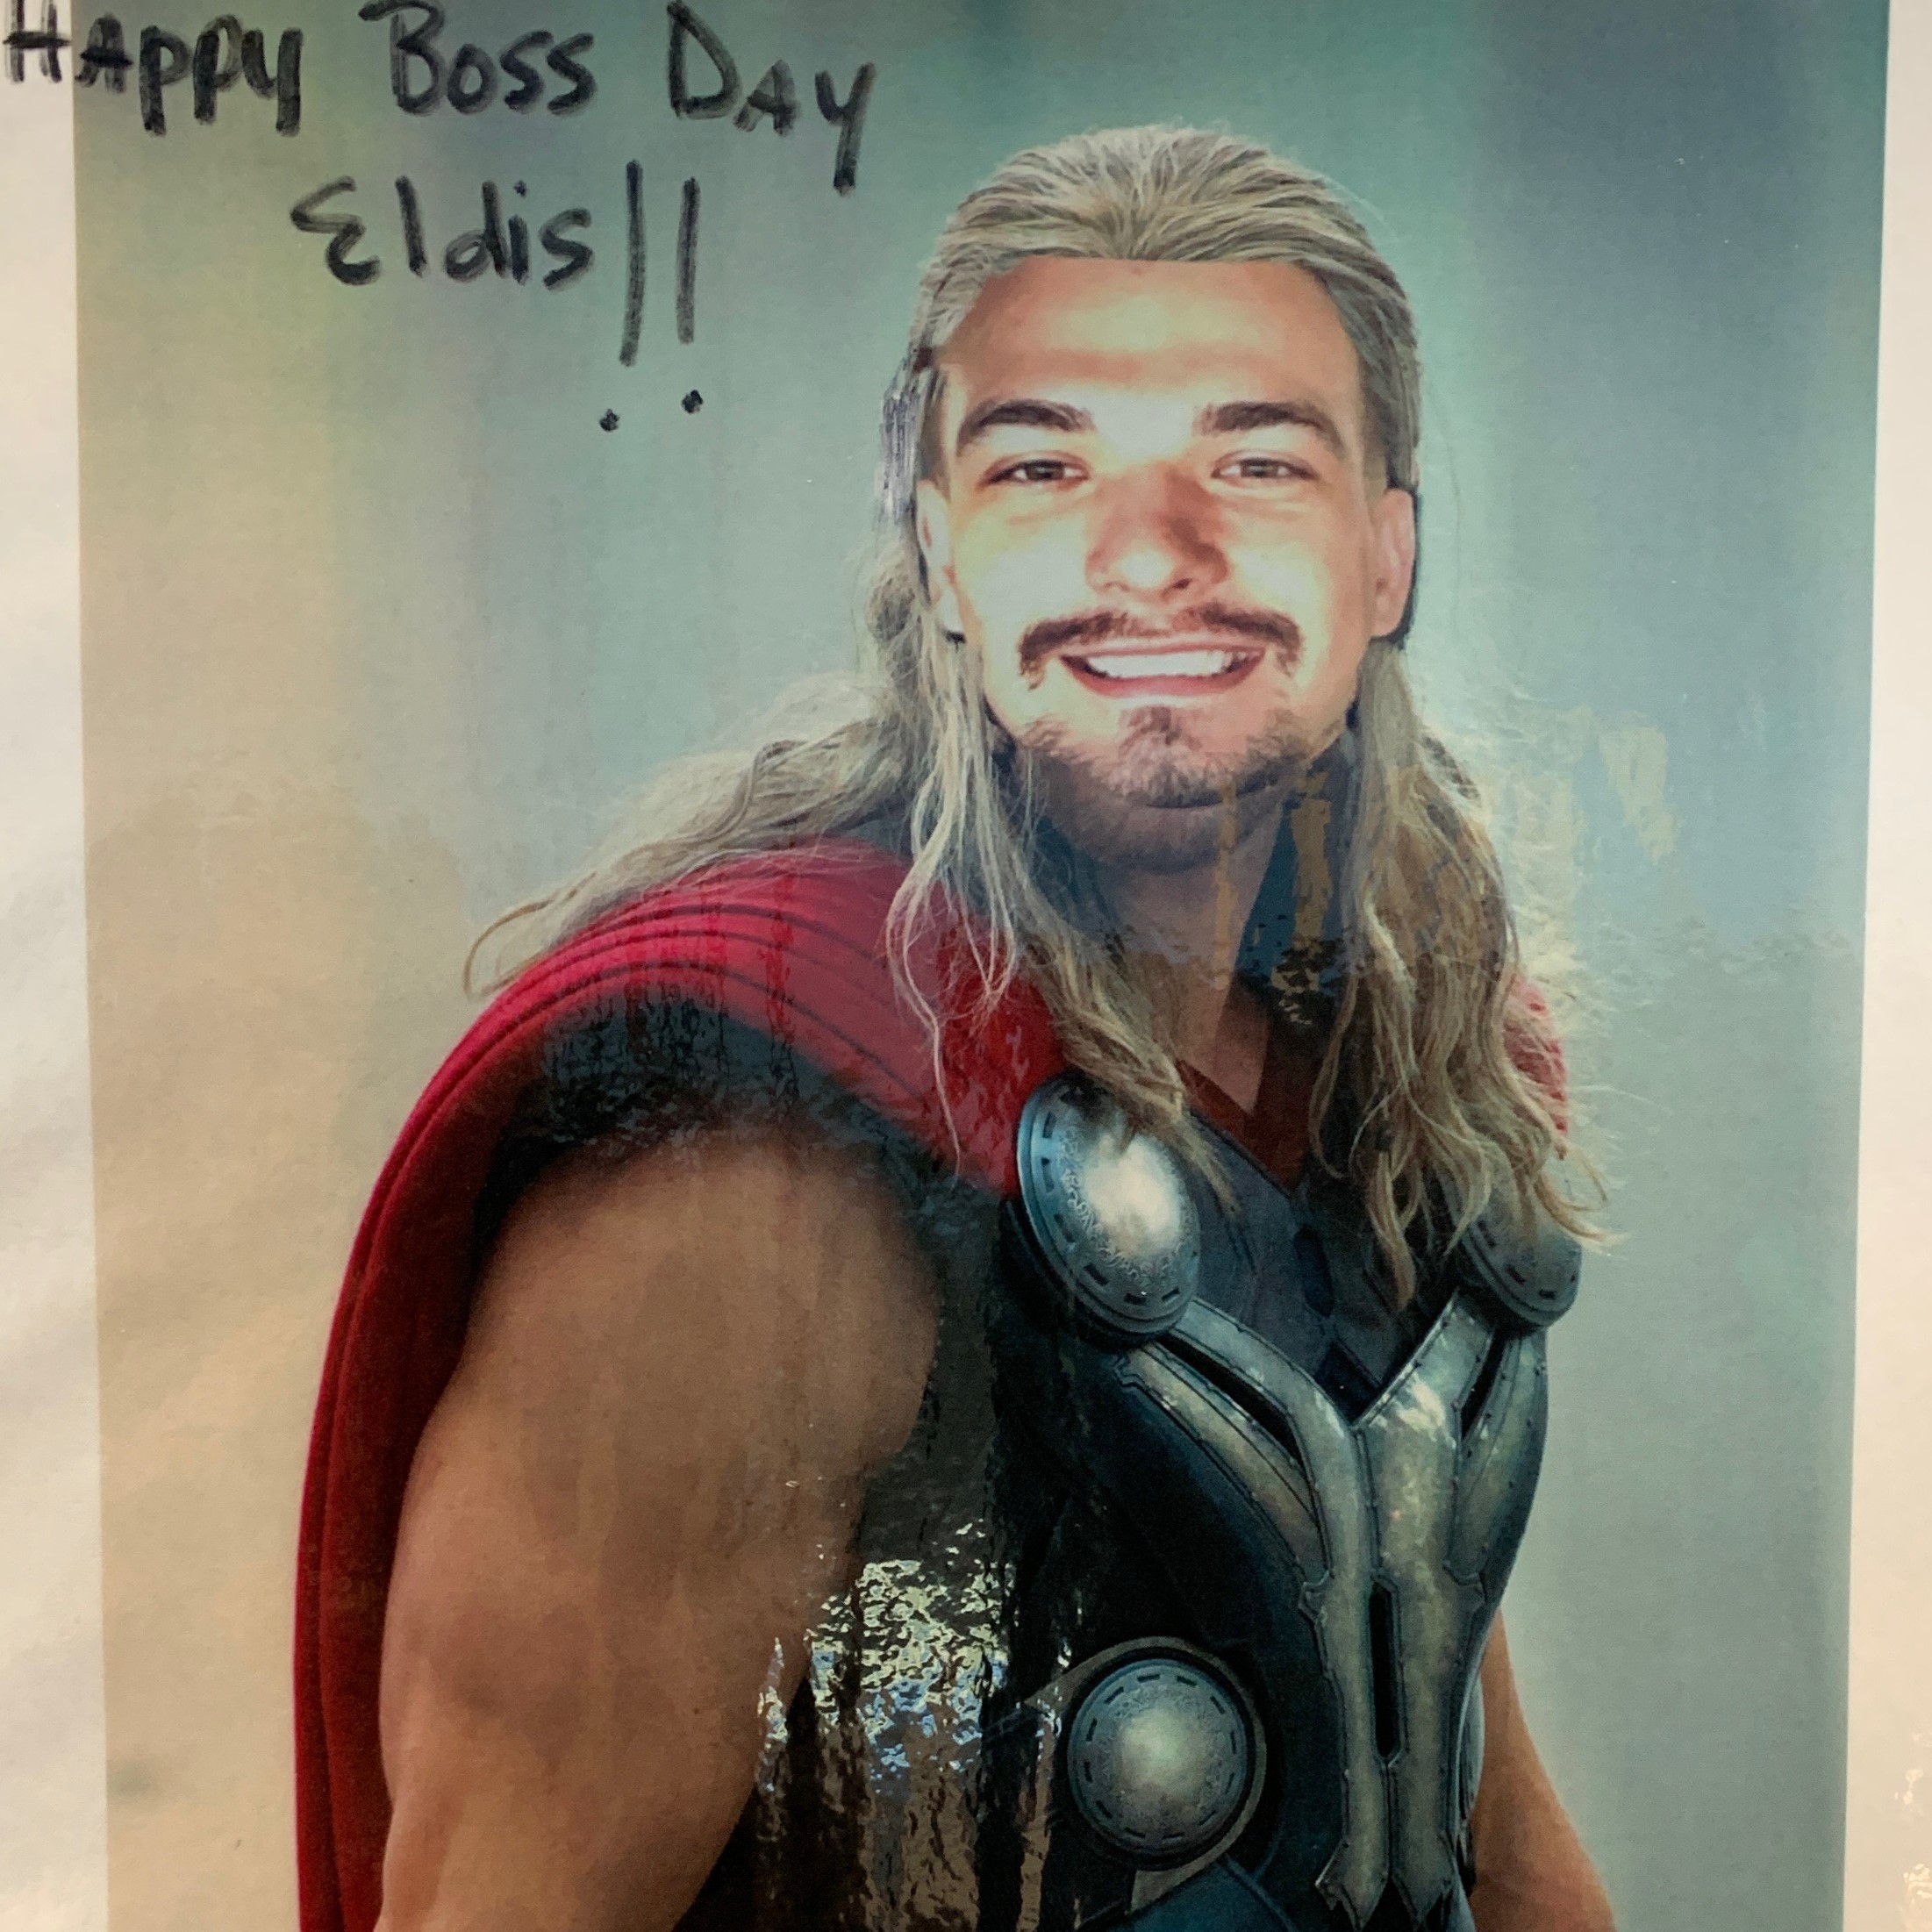 Happy Boss Day
Eldis!!